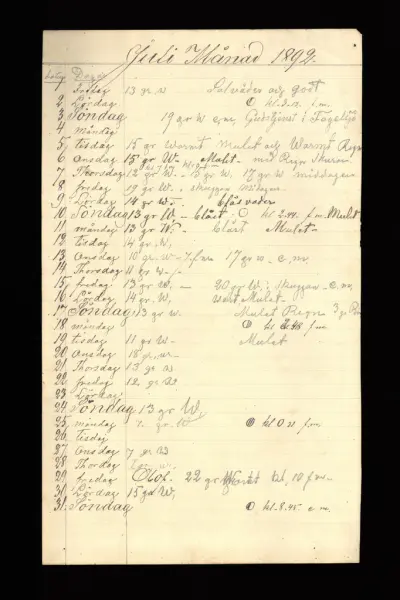 Juli Månad 1892.
Datg Dagar
1 fredag 13 gr. w Solväder och godt
2 Lördag O kl. f. m.
3 Söndag 19 gr w e.m. Gudstjenst i Fågelsjö
4 måndag
5 tisdag 15 gr Warmt Mulet och Warmt Regn
6 Onsdag 15 gr W. Mulet med Regn Skurar
7 Thorsdag 12 gr W. 17 gr w middagen
8 fredag 19 gr W. i skuggan middagen
9 Lördag 14 gr w. blåsväder
10 Söndag 13 gr W. - blåst O kl 2.44 f.m. Mulet
11 måndag 13 gr W. - blåst Mulet
12 tisdag 14 gr, W,
13 Onsdag 10 gr. w - f m 17 gr w - e, m
14 Thorsdag 11 gr w -
15 fredag 13 gr w, - 20 gr W, i Skuggan - e, m
16 Lördag 14 gr. W, Mulet -
17 Söndag 13 gr w. Mulet Regn 3
18 måndag O kl 2.48 f m
19 tisdag 11 gr W - Mulet
20 Onsdag 18 gr, w -
21 Thorsdag 13 gr w
22 fredag 12 gr W
23 Lördag
24 Söndag 13 gr W,
25 måndag 7 gr. W O kl 0.21 f m
26 tisdag
27 Onsdag 7 gr W
28 Thordag
29 fredag Olof. 22 gr kl, 10 f m -
30 Lördag 15 gd W,
31 Söndag O kl. 8.45 e m.